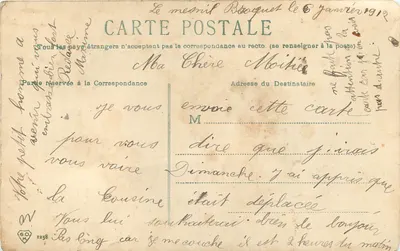 Le mesnil Bacquet le 6 Janvier 1912
CARTE POSTALE
Tous les pays étrangers n'acceptent pas la correspondance au recto (se renseigner à la poste).
Ma Chère Moitié
Partie réservée à la Correspondance
Adresse du Destinataire
je vous envoie cette carte
M
pour vous dire que j'irais
vous voire Dimanche. J'ai appris que
la Cousine était déplacés
Vous lui souhaiterai bien de bonjour
Pas Cinq car je me couche il est 2 heures du matin
Votre petit homme a
venir qui vous
embrasse bien fort
2258